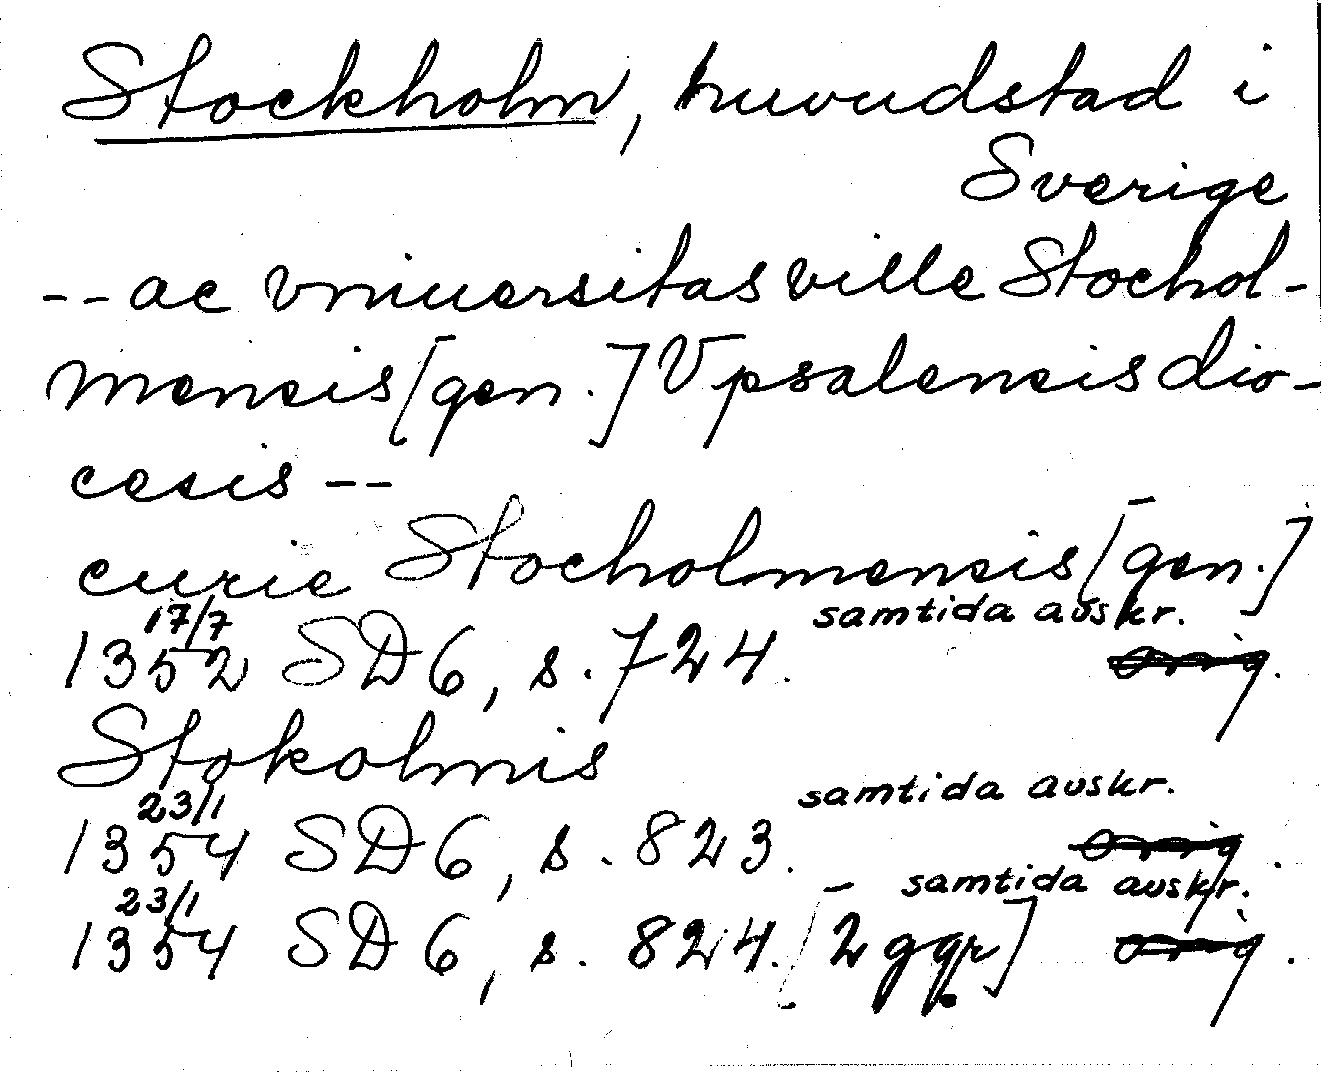 Stockholm, huvudstad i
Sverige
-- ac vniuersitas ville Stochol-
mensis [gen.] Vpsalensis dio-
cesis --
curie Stocholmensis [gen.]
samtida avskr.
17/7
1352 SD 6, s. 724. orig.
Stokolmis
samtida avskr.
23/1
1354 SD 6, s. 823. orig.
samtida avskr.
23/1
1354 SD 6, s. 824. [2 ggr] orig.